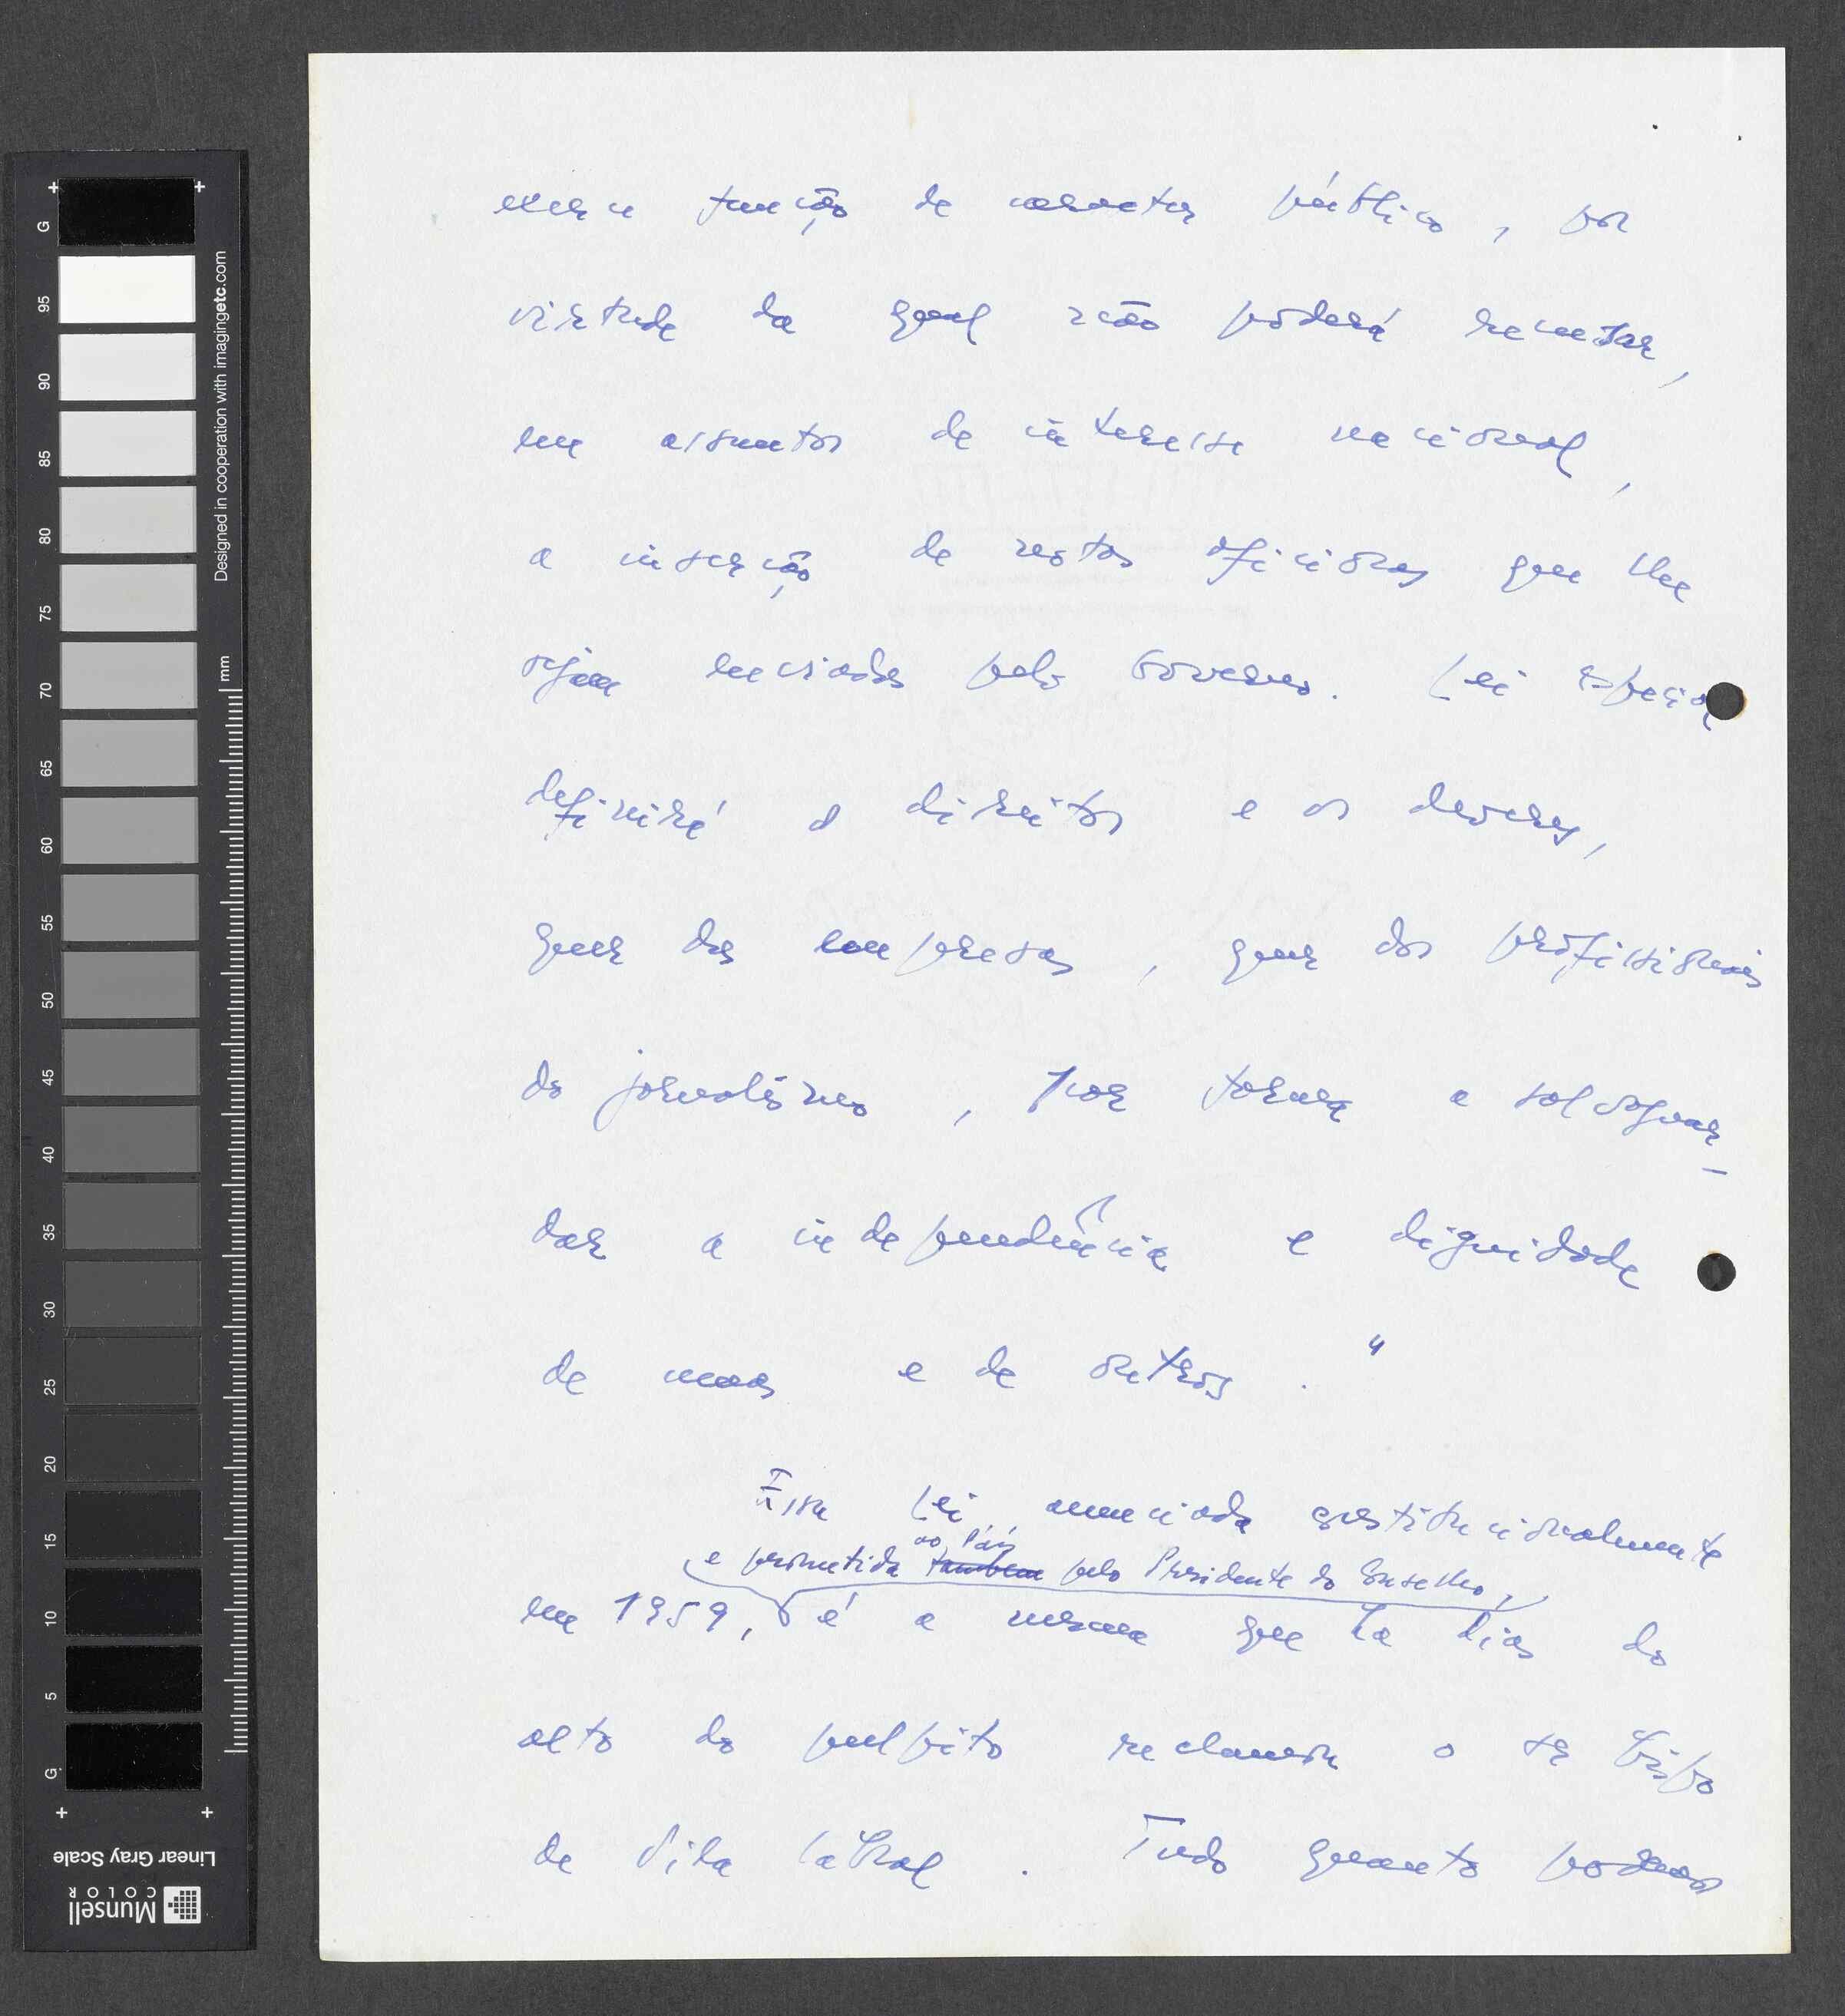 exerce função de caracter público, por
virtude da qual não poderá recusar,
em assuntos de interesse nacional,
a inserção de notas oficiosas que lhe
sejam enviadas pelo Governo. Lei especial
definirá os direitos e os deveres,
quer das empresas, quer dos profissionais
do jornalismo, por forma a salvaguar-
dar a independência e dignidade
de umas e de outros."
Essa Lei, anunciada constitucionalmente
ao País
e prometida também pelo Presidente do Conselho,
em 1959, é a mesma que há dias do
alto do pulpito reclamou o sr Bispo
de Vila Cabral. Tudo quanto podemos
G 95 90 85 80 75 70 65 60 55 50 45 40 35 30 25 20 15 10 5 G
Designed in cooperation with imagingetc.com
mm
Linear Gray Scale
Munsell
COLOR